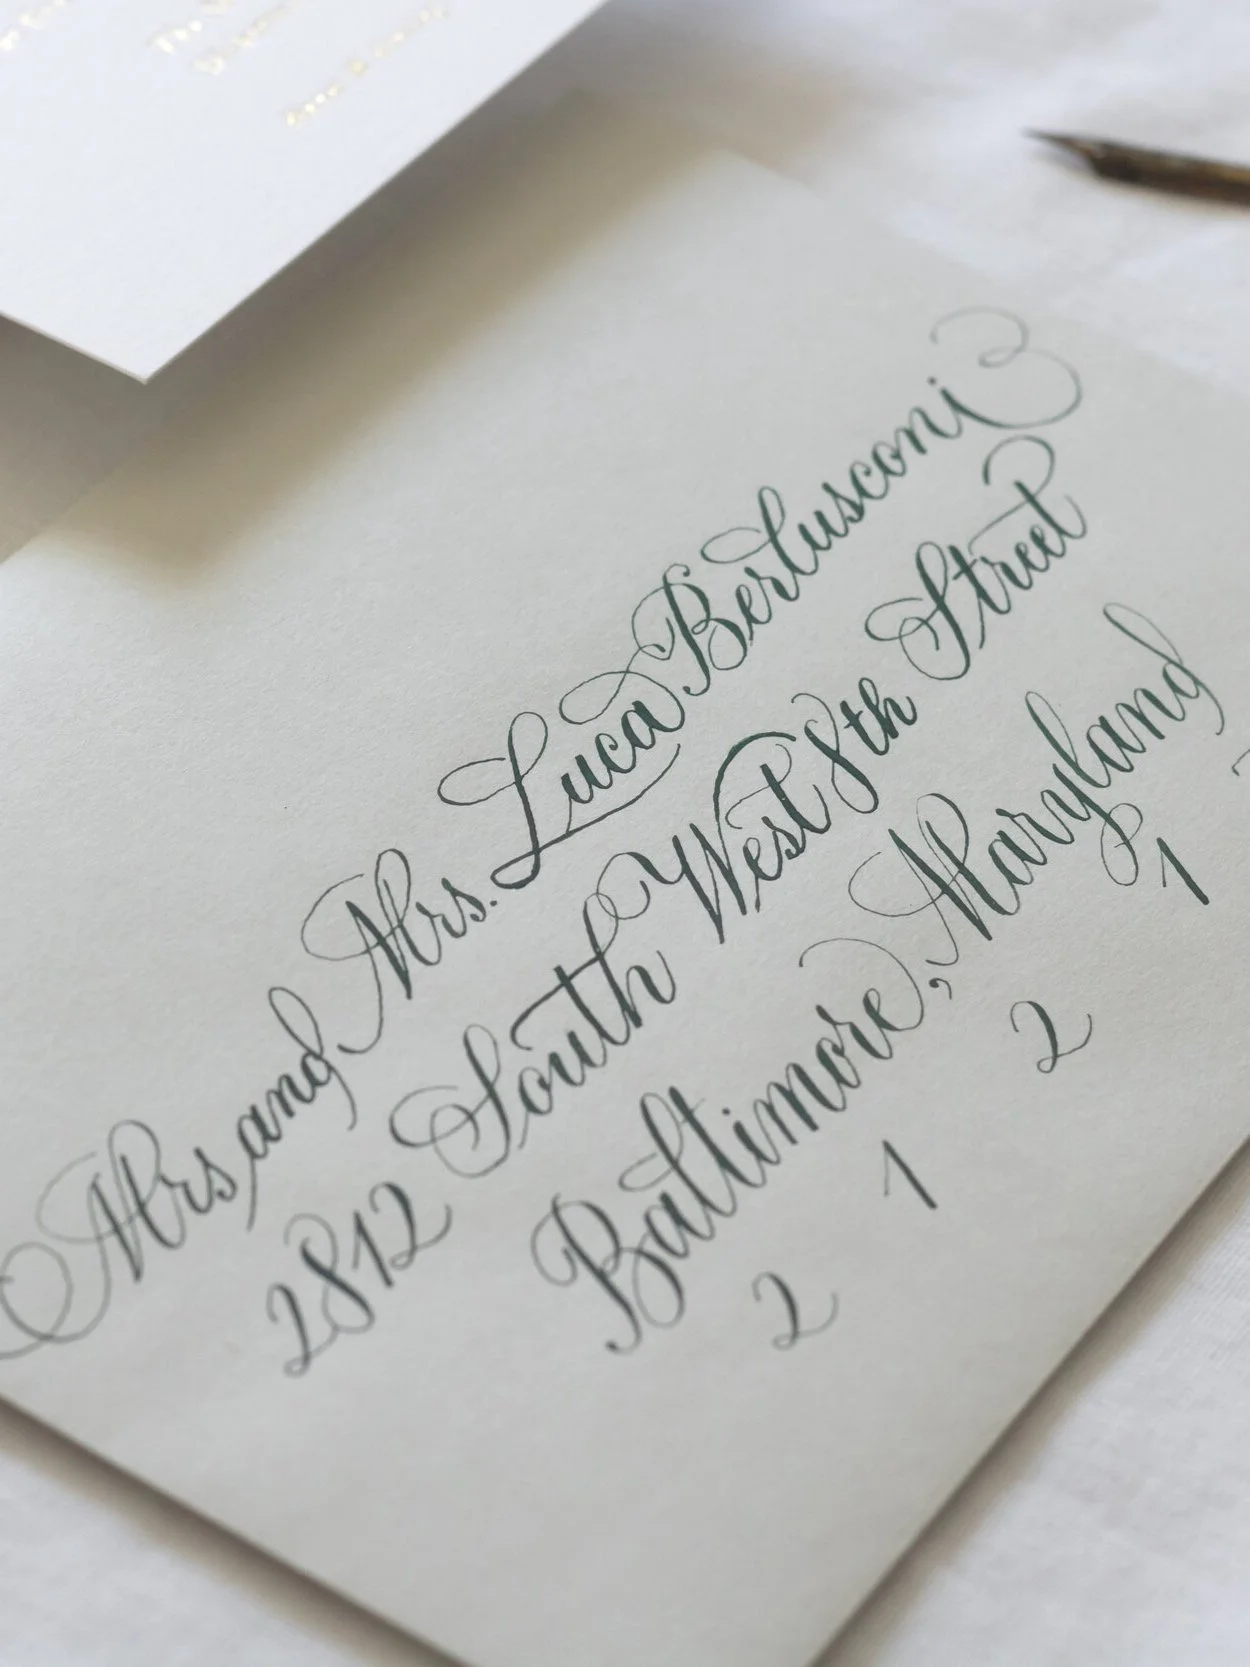 Mrs and Mrs. Luca Berlusconi
2812 South West 8th Street
Baltimore, Maryland
2 1 2 1